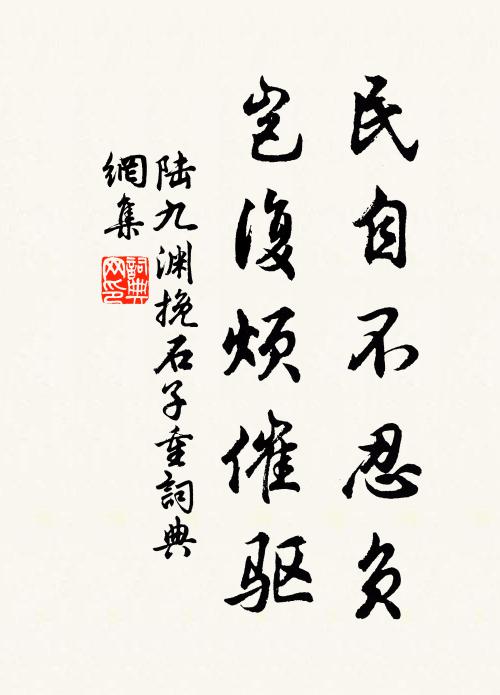 民自不忍负
岂復烦催驱
陆九渊挽石子重詞典
網集
詞典
网印